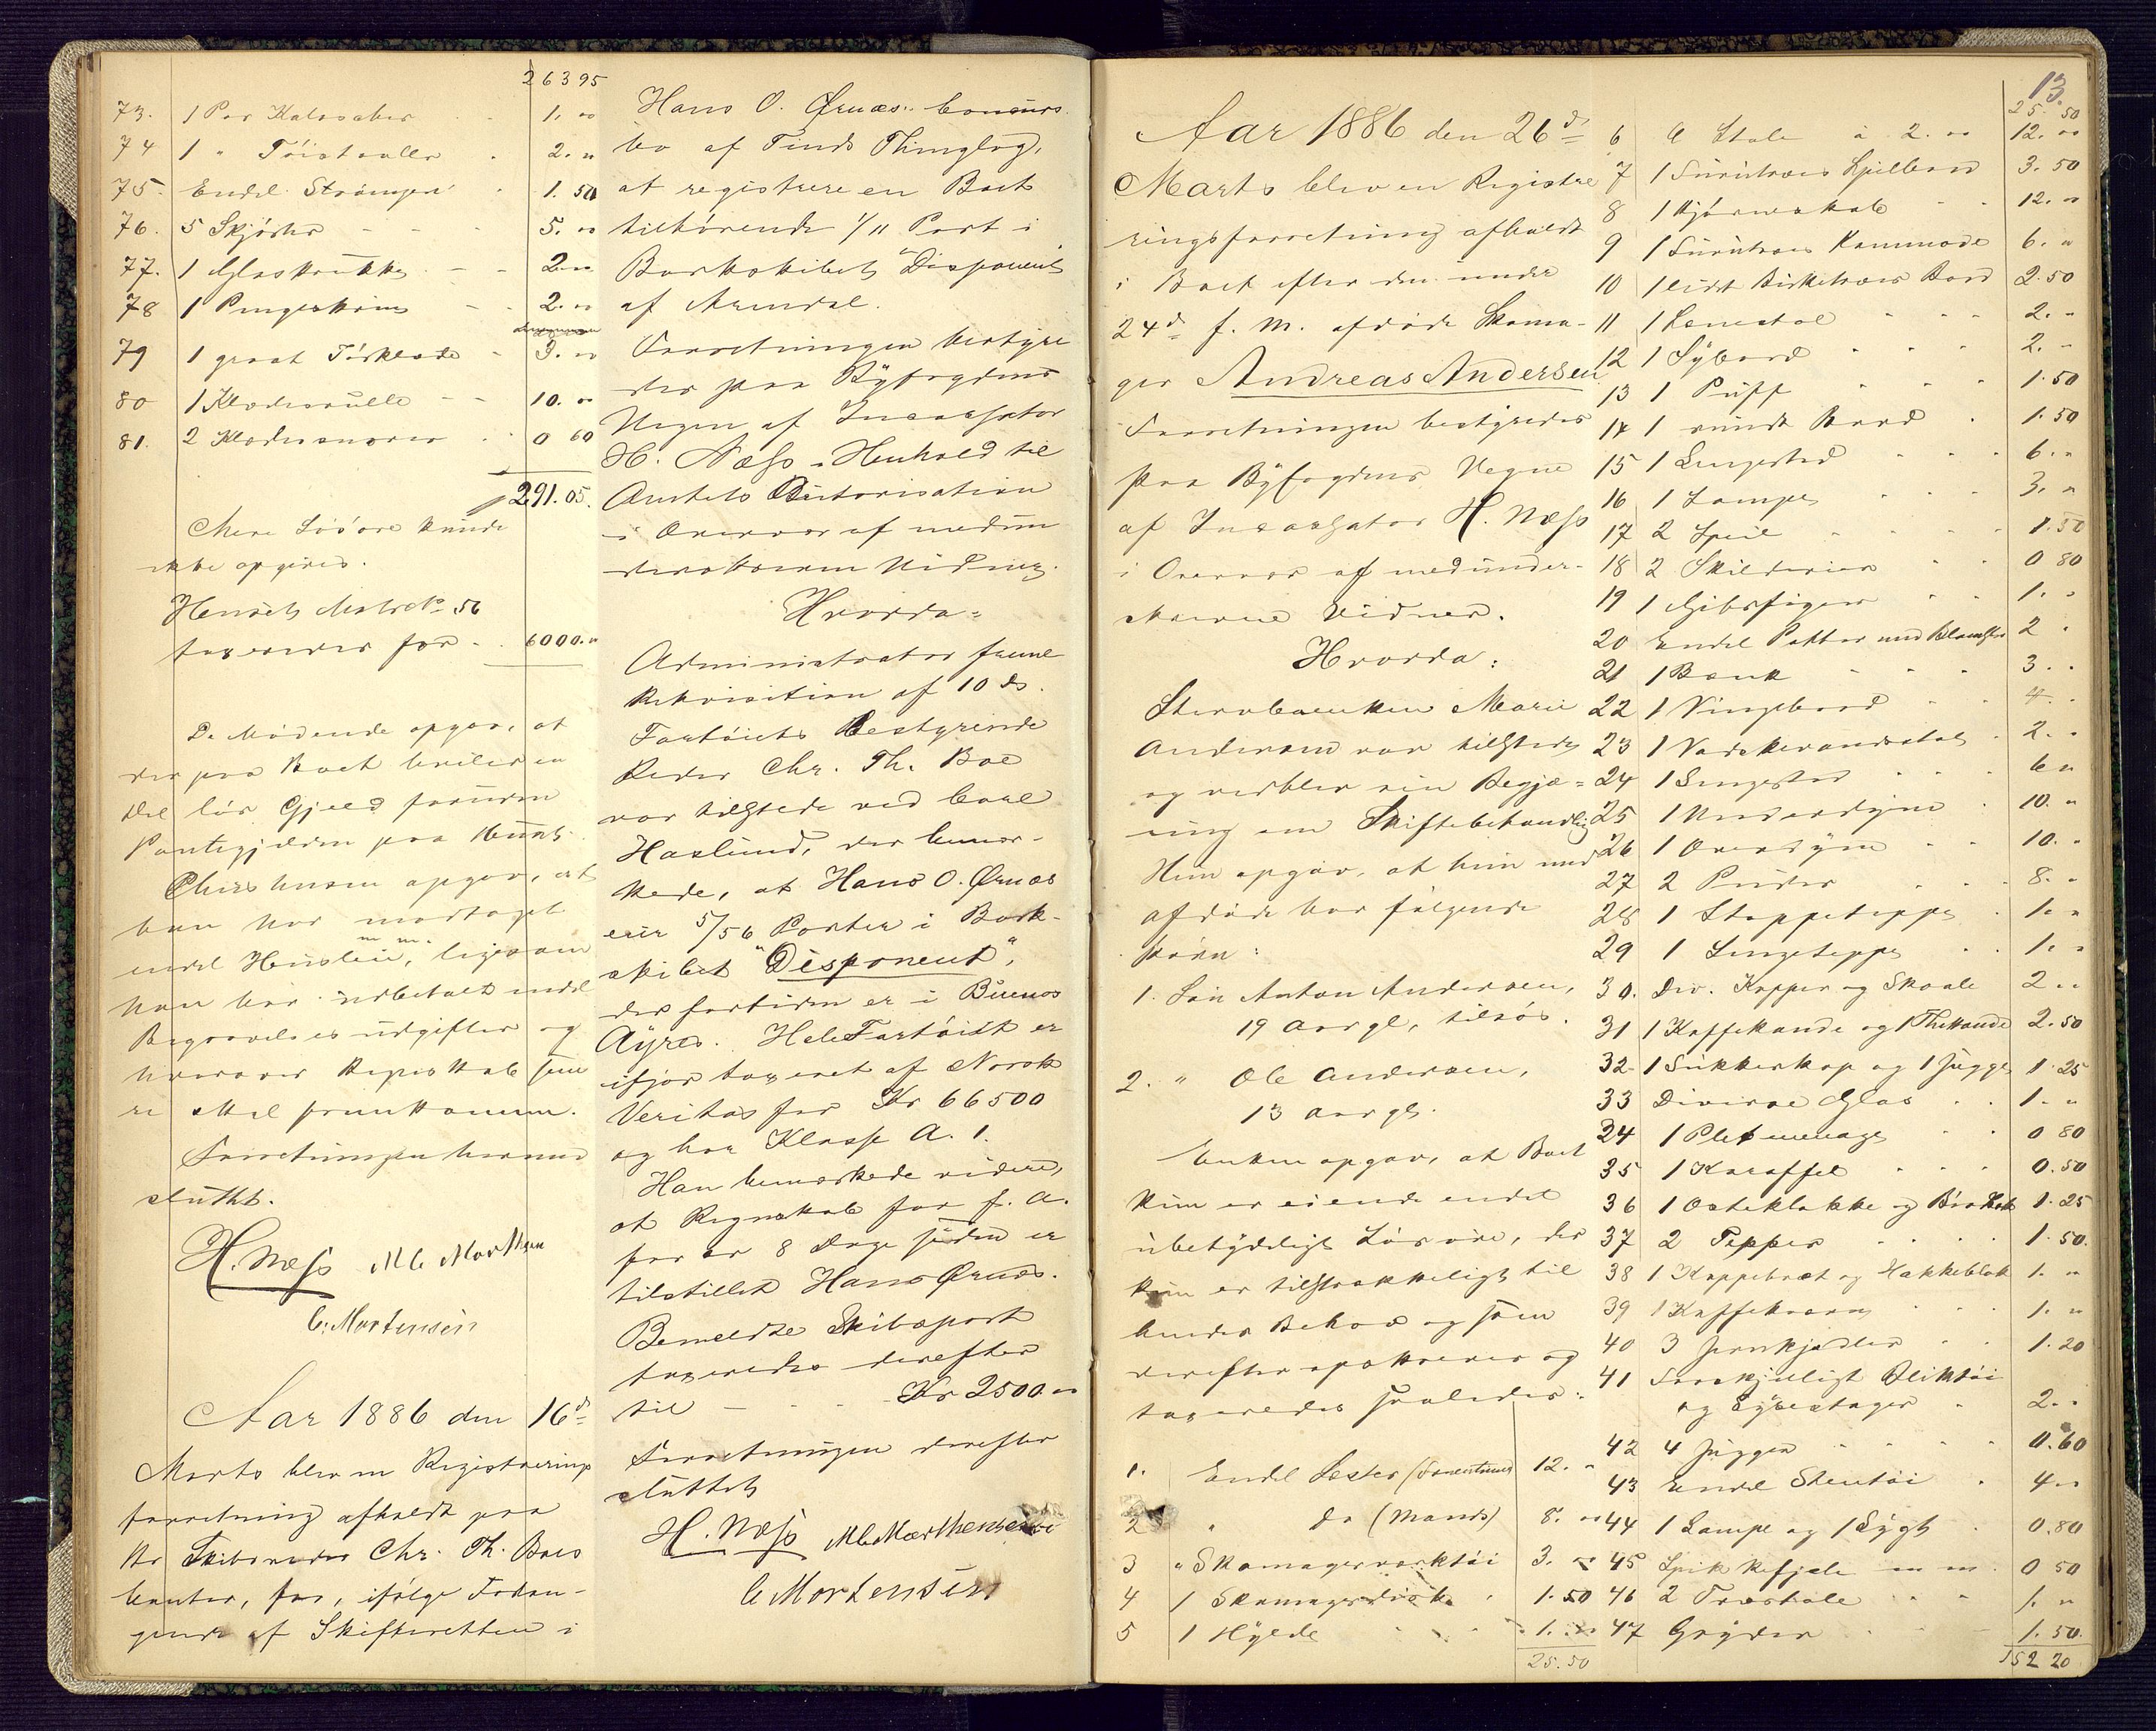 263 95
73. 1 Par Kalosaker 1. "
74 1 " Töistövller 2. "
75. Endel Strömper 1. 50
76. 5 Skjörter 5. "
77. 1 Glaskrukke 2. "
78 1 Pengeskrin 2. "
79 1 graat Törklæde 3. "
80 1 Klæderulle 10. "
81. 2 Klædesnorer 0 60
291.05.
Mere Lösöre kunde
ikke opgives.
Husets Matr No 56
taxeredes for 6000. "
De Mödende opgav, at
der paa Boet hviler en
Del lös Gjæld foruden
Pantegjælden paa Huset.
opgav, at
han har modtaget
endel Huusleie, m. m. ligesom
han har udbetalt endel
Begravelsesudgifter og
hvorover Regnskab sene
re skal fremkomme.
Forretningen hermed
sluttet.
H. Næss M C Morthensen
C. Mortensen
Aar 1886 den 16d
Marts blev en Registrerings
forretning afholdt paa
Hr Skibsreder Chr. Th. Boes
Contor, for, ifölge Forlan-
gende af Skifteretten i
Hans O. Ørnæs' Concurs
bo af Thinglag,
at registrere en Boet
tilhörende 1/11 Part i
Barkskibet "Disponent"
af Arendal.
Forretningen bestyre
des paa Byfogdens
Vegne af Incassator
H. Næss i Henhold til
Amtets Autorisation
i Overvær af medun
derskrevne Vidner.
Hvorda:
Administrator freml.
Rekvisition af 10 ds.
Fartöiets Bestyrende
Reder Chr. Th. Boe
var tilstede ved Carl
Haslund, der bemær-
kede, at Hans O. Ørnæs
eier 5/56 Parter i Bark-
skibet "Disponent",
der fortiden er i Buenos
Ayres. Hele Fartöiet er
ifjor taxeret af Norsk
Veritas for Kr 66500
og har Klasse A. 1.
Han bemærkede videre,
at Regnskab for f. A.
for ca 8 Dage siden er
tilstillet Hans Ørnæs.
Bemeldte Skibspart
taxeredes derefter
til Kr 2500. "
Forretningen derefter
sluttet
H. Næss M C Morthensen
C Mortensen
13.
Aar 1886 den 26d
Marts blev en Registre
ringsforretning afholdt
i Boet efter den under
24d f. M. afdöde Skoma-
ger Andreas Andersen
Forretningen bestyredes
paa Byfogdens Vegne
af Incassator H. Næss
i Overvær af medunder-
skrevne Vidner.
Hvorda:
Sterboenken Marie
Andersen var tilstede
og vedblev sin Begjæ-
ring om Skiftebehandling
Hun opgav, at hun med
afdöde har fölgende
Börn:
1. Sön Anton Andersen,
19 Aar gl, tilsös.
2. " Ole Andersen,
13 Aar gl.
Enken opgav, at Boet
kun er eiende endel
ubetydeligt Lösöre, der
kun er tilstrækkeligt til
hendes Behov og som
derefter opskreves og
taxeredes saaledes:
1. Endel Læster (Fruentimmer) 12. "
2 " do (Mands) 8. "
3 " Skomagerværktöi 3. "
4 1 Skomagerdisk 1.50
5 1 Hylde 1. "
25.50
25.50
6 6 Stole à 2. " 12. "
7 1 Furutræes Spillebord 3.50
8 1 Hjörneskab 12. "
9 1 Furutræes Kommode 6. "
10 1 lidt Birketræes Bord 2.50
11 1 Lænestol 2. "
12 1 Sybord 2. "
13 1 Puff 1.50
14 1 rundt Bord 1.50
15 1 Sengested 6. "
16 1 Lampe 3. "
17 2 Speil 1.50
18 2 Skilderier 0 80
19 1 Gibsfigur 1. "
20 Endel Potter med Blomster 2 "
21 1 Bænk 3. "
22 1 Vingebord 4. "
23 1 Vadskevandsstol 2. "
24 1 Sengested 6 "
25 1 Underdyne 10. "
26 1 Overdyne 10. "
27 2 Puder 8. "
28 1 Stoppeteppe 1. "
29 1 Sengeteppe 1. "
30. Div. Kopper og Skaale 2 "
31 1 Kaffekande og 1 Thekande 2.50
32. 1 Sukkerkop og 1 Jugge 1.25
33 Diverse Glas 1. "
24 1 Pletmenage 0 80
35 1 Karaffel 0.50
36 1 Osteklokke og Brödfad 1.25
37 2 Tepper 1.50.
38 1 Koppebræt og Hakkeblok 1. "
39 1 Kaffekværn 1. "
40 3 Jernkjedler 1.20
41 Forskjelligt Bliktöi
og Lysestager 2. "
42 4 Jugger 0.60
43 Endel Stentöi 4 "
44 1 Lampe og 1 Lygt 0.80
45 Spikkefjæle m m. 0 50
46 2 Træstole 1. "
47 Gryder 1.50.
152 20